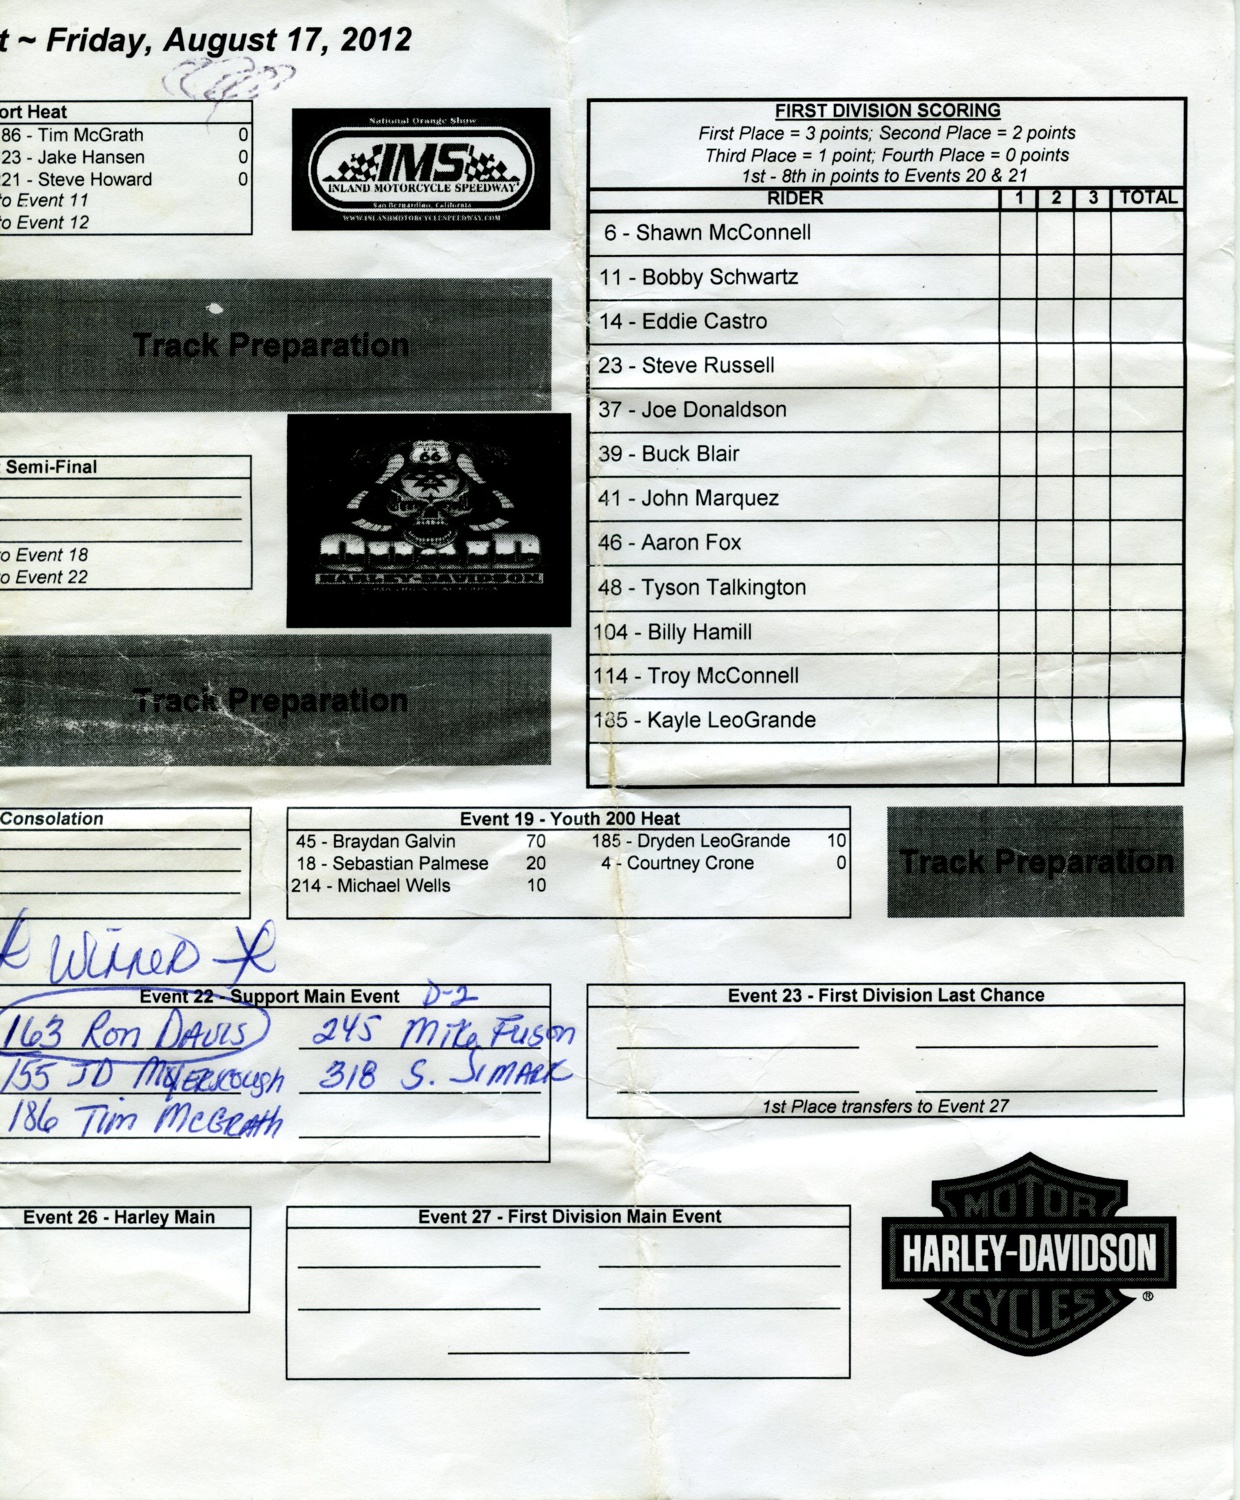 t ~ Friday, August 17, 2012
ort Heat
86 - Tim McGrath 0
23 - Jake Hansen 0
21 - Steve Howard 0
to Event 11
to Event 12
National Orange Show
IMS
INLAND MOTORCYCLE SPEEDWAY
San Bernardino, California
WWW.INLANDMOTORCYCLESPEEDWAY.COM
FIRST DIVISION SCORING
First Place = 3 points; Second Place = 2 points
Third Place = 1 point; Fourth Place = 0 points
1st - 8th in points to Events 20 & 21
RIDER 1 2 3 TOTAL
6 - Shawn McConnell
11 - Bobby Schwartz
14 - Eddie Castro
23 - Steve Russell
37 - Joe Donaldson
39 - Buck Blair
41 - John Marquez
46 - Aaron Fox
48 - Tyson Talkington
104 - Billy Hamill
114 - Troy McConnell
185 - Kayle LeoGrande
Track Preparation
Semi-Final
to Event 18
to Event 22
66
HARLEY-DAVIDSON
Track Preparation
Consolation
Event 19 - Youth 200 Heat
45 - Braydan Galvin 70 185 - Dryden LeoGrande 10
18 - Sebastian Palmese 20 4 - Courtney Crone 0
214 - Michael Wells 10
Track Preparation
WINNER
Event 22 - Support Main Event D-2
163 Ron DAVIS 245 Mike Fuson
155 JD 318 S.
186 Tim McGRATH
Event 23 - First Division Last Chance
1st Place transfers to Event 27
Event 26 - Harley Main
Event 27 - First Division Main Event
MOTOR
HARLEY-DAVIDSON
CYCLES ®